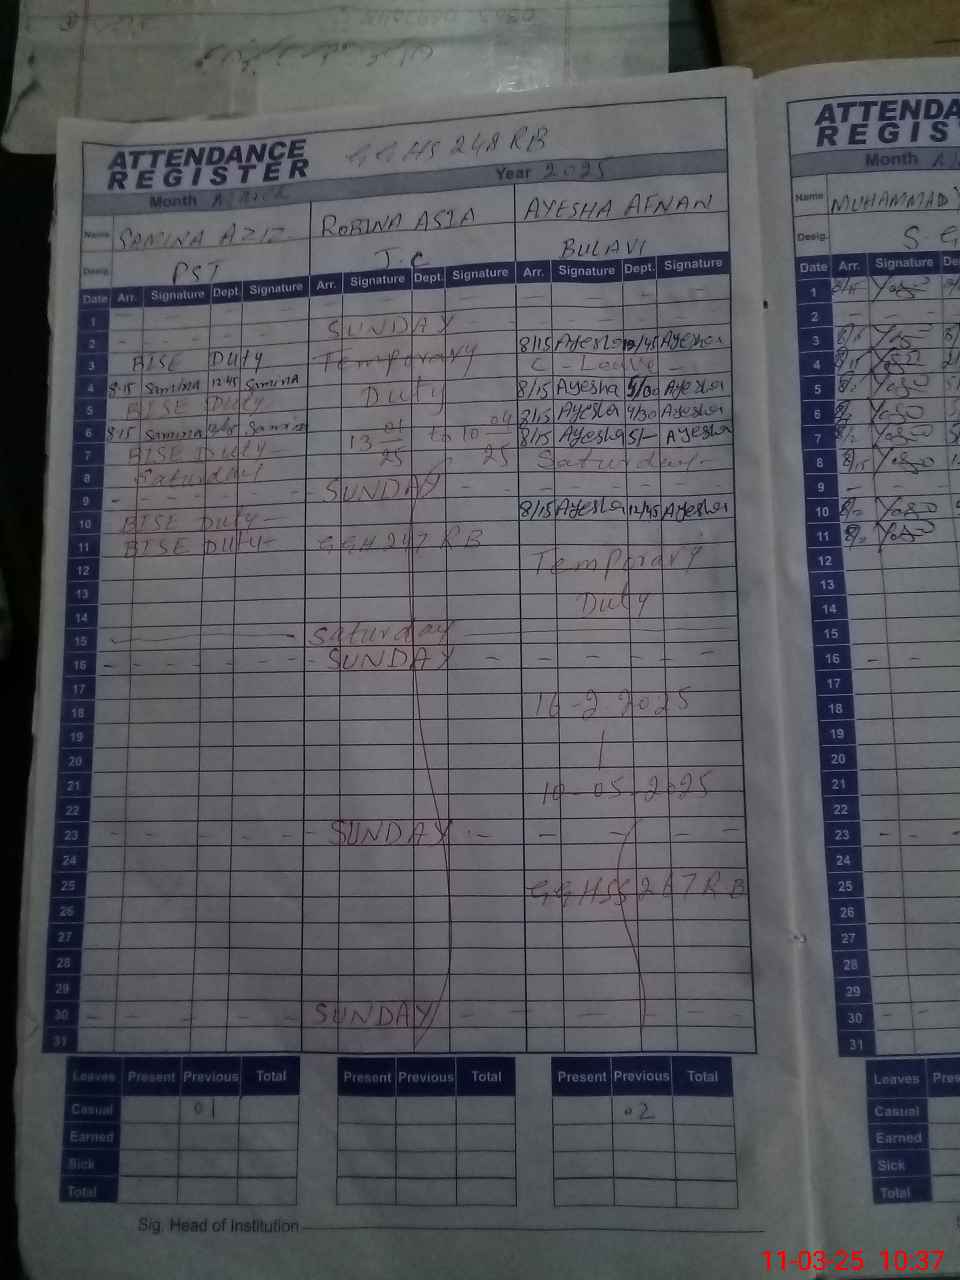 ATTENDANCE REGISTER GGHS 248 RB
Month March Year 2025
Name SAMINA AZIZ ROBINA ASIA AYESHA AFNAN
Desig. PST J.C BULAVI
Date Arr. Signature Dept. Signature Arr. Signature Dept. Signature Arr. Signature Dept. Signature
1
2 - - - - SUNDAY - - - -
3 BISE Duty Temporary 8/15 Ayesha 12/45 Ayesha
4 8:15 Samina 12 45 Samina C - Leave -
5 BISE Duty Duty 8/15 Ayesha 5/00 Ayesha
6 8:15 Samina Samina 8/15 Ayesha 4/30 Ayesha
7 BISE Duty - 13 01 25 to 10 04 25 8/15 Ayesha 5/- Ayesha
8 Saturday Saturday -
9 - - - - SUNDAY - - - -
10 BISE Duty - 8/15 Ayesha 12/45 Ayesha
11 BISE Duty - GGH 247 RB
12 Temporary
13
14 Duty
15 Saturday
16 - - - - SUNDAY - - - -
17
18 16-2-2025
19
20
21
22 10-05-2025
23 - - - - SUNDAY - - - -
24
25
26 GGHSS 267 RB
27
28
29
30 - - - - SUNDAY - - - -
31
Leaves Present Previous Total Present Previous Total Present Previous Total
Casual 01 02
Earned
Sick
Total
Sig. Head of Institution
ATTENDA
REGIS
Month
Name MUHAMMAD Y
Desig. S.
Date Arr. Signature De
1 8/15
2 -
3
4
5
6
7
8 8/15
9 -
10
11
12
13
14
15
16 - -
17
18
19
20
21
22
23 - -
24
25
26
27
28
29
30 - -
31
Leaves Pres
Casual
Earned
Sick
Total
11-03-25 10:37